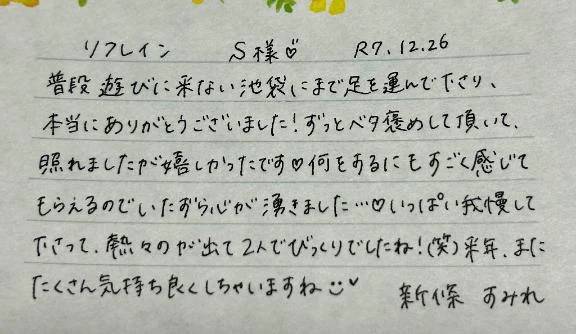 リフレイン S様♡ R7.12.26
普段遊びに来ない池袋にまで足を運んで下さり、
本当にありがとうございました!ずっとベタ褒めして頂いて、
照れましたが嬉しかったです♡何をするにもすごく感じて
もらえるのでいたずら心が湧きました…♡いっぱい我慢して
下さって、熱々のが出て2人でびっくりでしたね!(笑)来年、また
たくさん気持ち良くしちゃいますね☺♡
新條 すみれ